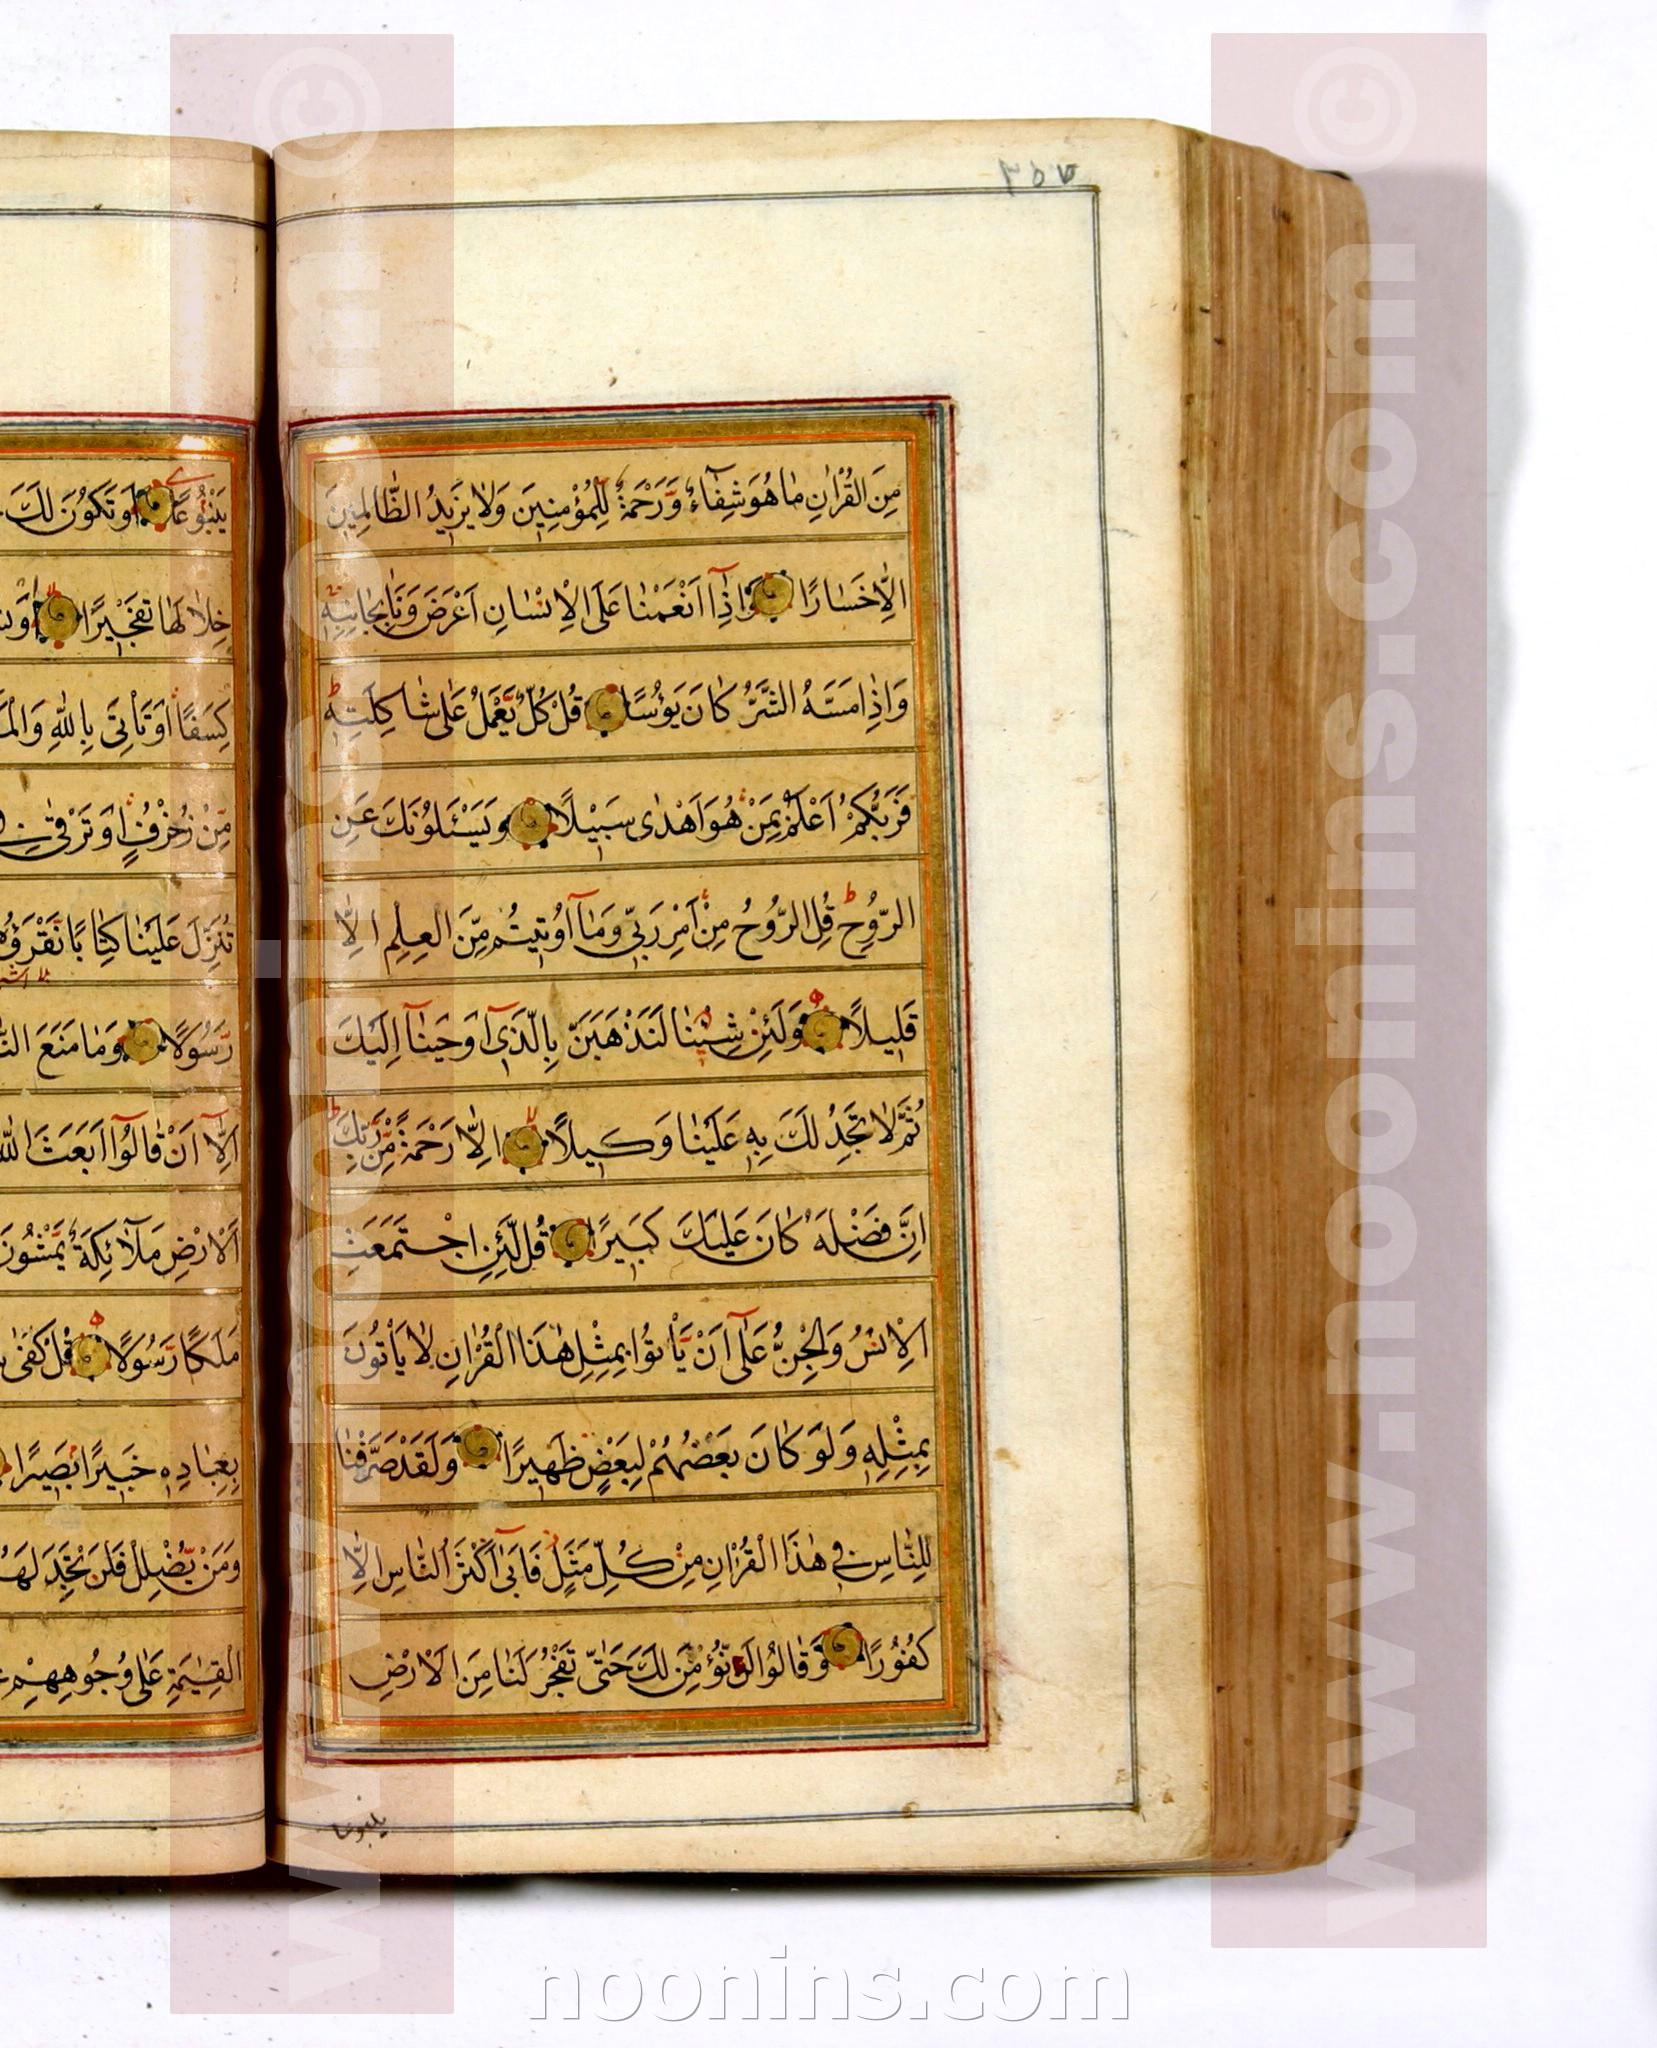 ٣٥٧
مِنَ الْقُرْاٰنِ مٰا هُوَ شِفٰٓاءٌ وَّرَحْمَةٌ لِّلْمُؤْمِنِينَ وَلٰا يَزِيدُ الظّٰالِمِينَ
اِلّٰا خَسٰارًا وَاِذٰٓا اَنْعَمْنٰا عَلَى الْاِنْسٰانِ اَعْرَضَ وَنَاٰ بِجٰانِبِهِ
وَاِذٰا مَسَّهُ الشَّرُّ كٰانَ يَؤُسًا قُلْ كُلٌّ يَّعْمَلُ عَلٰى شٰاكِلَتِهِ
فَرَبُّكُمْ اَعْلَمُ بِمَنْ هُوَ اَهْدٰى سَبِيْلًا وَيَسْئَلُوْنَكَ عَنِ
الرُّوحِ قُلِ الرُّوحُ مِنْ اَمْرِ رَبِّى وَمٰٓا اُوتِيتُم مِّنَ الْعِلْمِ اِلّٰا
قَلِيلًا وَلَئِنْ شِئْنٰا لَنَذْهَبَنَّ بِالَّذِىٓ اَوْحَيْنٰٓا اِلَيْكَ
ثُمَّ لٰا تَجِدُ لَكَ بِهِ عَلَيْنٰا وَكِيلًا اِلّٰا رَحْمَةً مِّنْ رَبِّكَ
اِنَّ فَضْلَهُ كٰانَ عَلَيْكَ كَبِيرًا قُل لَّئِنِ اجْتَمَعَتِ
الْاِنْسُ وَالْجِنُّ عَلٰٓى اَنْ يَّأْتُوا بِمِثْلِ هٰذَا الْقُرْاٰنِ لٰا يَأْتُونَ
بِمِثْلِهِ وَلَوْ كٰانَ بَعْضُهُمْ لِبَعْضٍ ظَهِيرًا وَلَقَدْ صَرَّفْنٰا
لِلنّٰاسِ فِى هٰذَا الْقُرْاٰنِ مِنْ كُلِّ مَثَلٍ فَاَبٰىٓ اَكْثَرُ النّٰاسِ اِلّٰا
كُفُورًا وَقٰالُوا لَنْ نُّؤْمِنَ لَكَ حَتّٰى تَفْجُرَ لَنٰا مِنَ الْاَرْضِ
ينبوعا
يَنْبُوْعًا اَوْ تَكُوْنَ لَكَ
خِلٰالَهٰا تَفْجِيْرًا
كِسَفًا اَوْ تَأْتِىَ بِاللّٰهِ
مِّنْ زُخْرُفٍ اَوْ تَرْقٰى
تُنَزِّلَ عَلَيْنٰا كِتٰابًا نَقْرَؤُهُ
رَّسُوْلًا وَمٰا مَنَعَ
اِلّٰٓا اَنْ قٰالُوٓا اَبَعَثَ اللّٰه
الْاَرْضِ مَلٰٓائِكَةٌ يَّمْشُونَ
مَلَكًا رَّسُوْلًا قُلْ كَفٰى
بِعِبٰادِهِ خَبِيْرًا بَصِيرًا
وَمَنْ يُّضْلِلْ فَلَنْ تَجِدَ لَهُ
الْقِيٰمَةِ عَلٰى وُجُوهِهِمْ
www.noonins.com ©
www.noonins.com ©
noonins.com